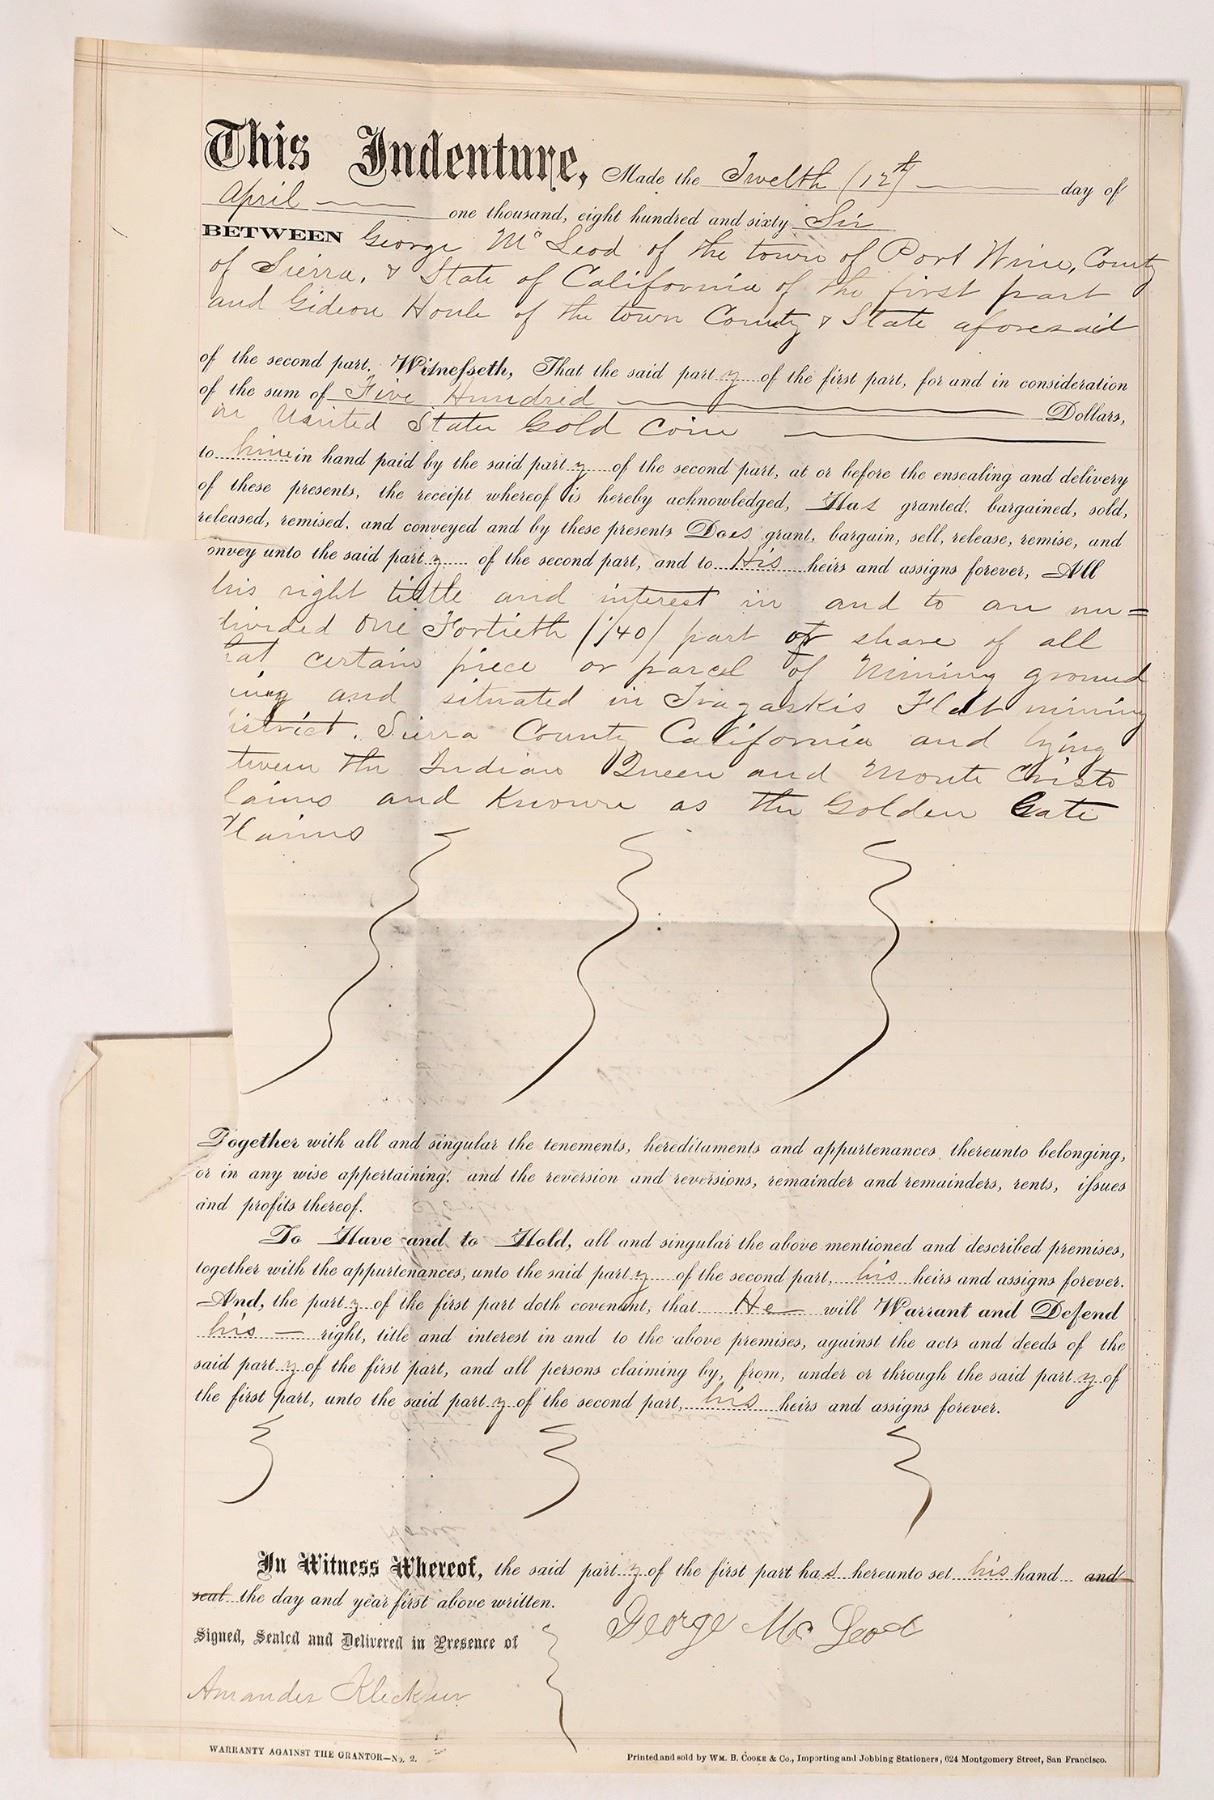 This Indenture, Made the Twelth (12th) day of
April one thousand, eight hundred and sixty Six
BETWEEN George McLeod of the town of Port Wine, County
of Sierra, & State of California of the first part
and Gideon Houle of the town County & State aforesaid
of the second part. Witnesseth, That the said party of the first part, for and in consideration
of the sum of Five Hundred Dollars,
in United States Gold Coin
to him in hand paid by the said party of the second part, at or before the ensealing and delivery
of these presents, the receipt whereof is hereby acknowledged, Has granted, bargained, sold,
released, remised, and conveyed and by these presents Does grant, bargain, sell, release, remise, and
onvey unto the said party of the second part, and to His heirs and assigns forever, All
his right tittle and interest in and to an un=
divided One Fortieth (1/40) part or share of all
hat certain piece or parcel of Mining ground
ing and situated in Tragaskis Flat mining
istrict. Sierra County California and lying
tween the Indian Queen and Monte Christo
laims and Known as the Golden Gate
Claims
Together with all and singular the tenements, hereditaments and appurtenances thereunto belonging,
or in any wise appertaining, and the reversion and reversions, remainder and remainders, rents, issues
and profits thereof.
To Have and to Hold, all and singular the above mentioned and described premises,
together with the appurtenances, unto the said party of the second part, his heirs and assigns forever.
And, the party of the first part doth covenant, that He will Warrant and Defend
his right, title and interest in and to the above premises, against the acts and deeds of the
said party of the first part, and all persons claiming by, from, under or through the said party of
the first part, unto the said party of the second part, his heirs and assigns forever.
In Witness Whereof, the said party of the first part has hereunto set his hand and
seal the day and year first above written.
Signed, Sealed and Delivered in Presence of
George McLeod
Amander
WARRANTY AGAINST THE GRANTOR—No. 2.
Printed and sold by WM. B. COOKE & Co., Importing and Jobbing Stationers, 624 Montgomery Street, San Francisco.